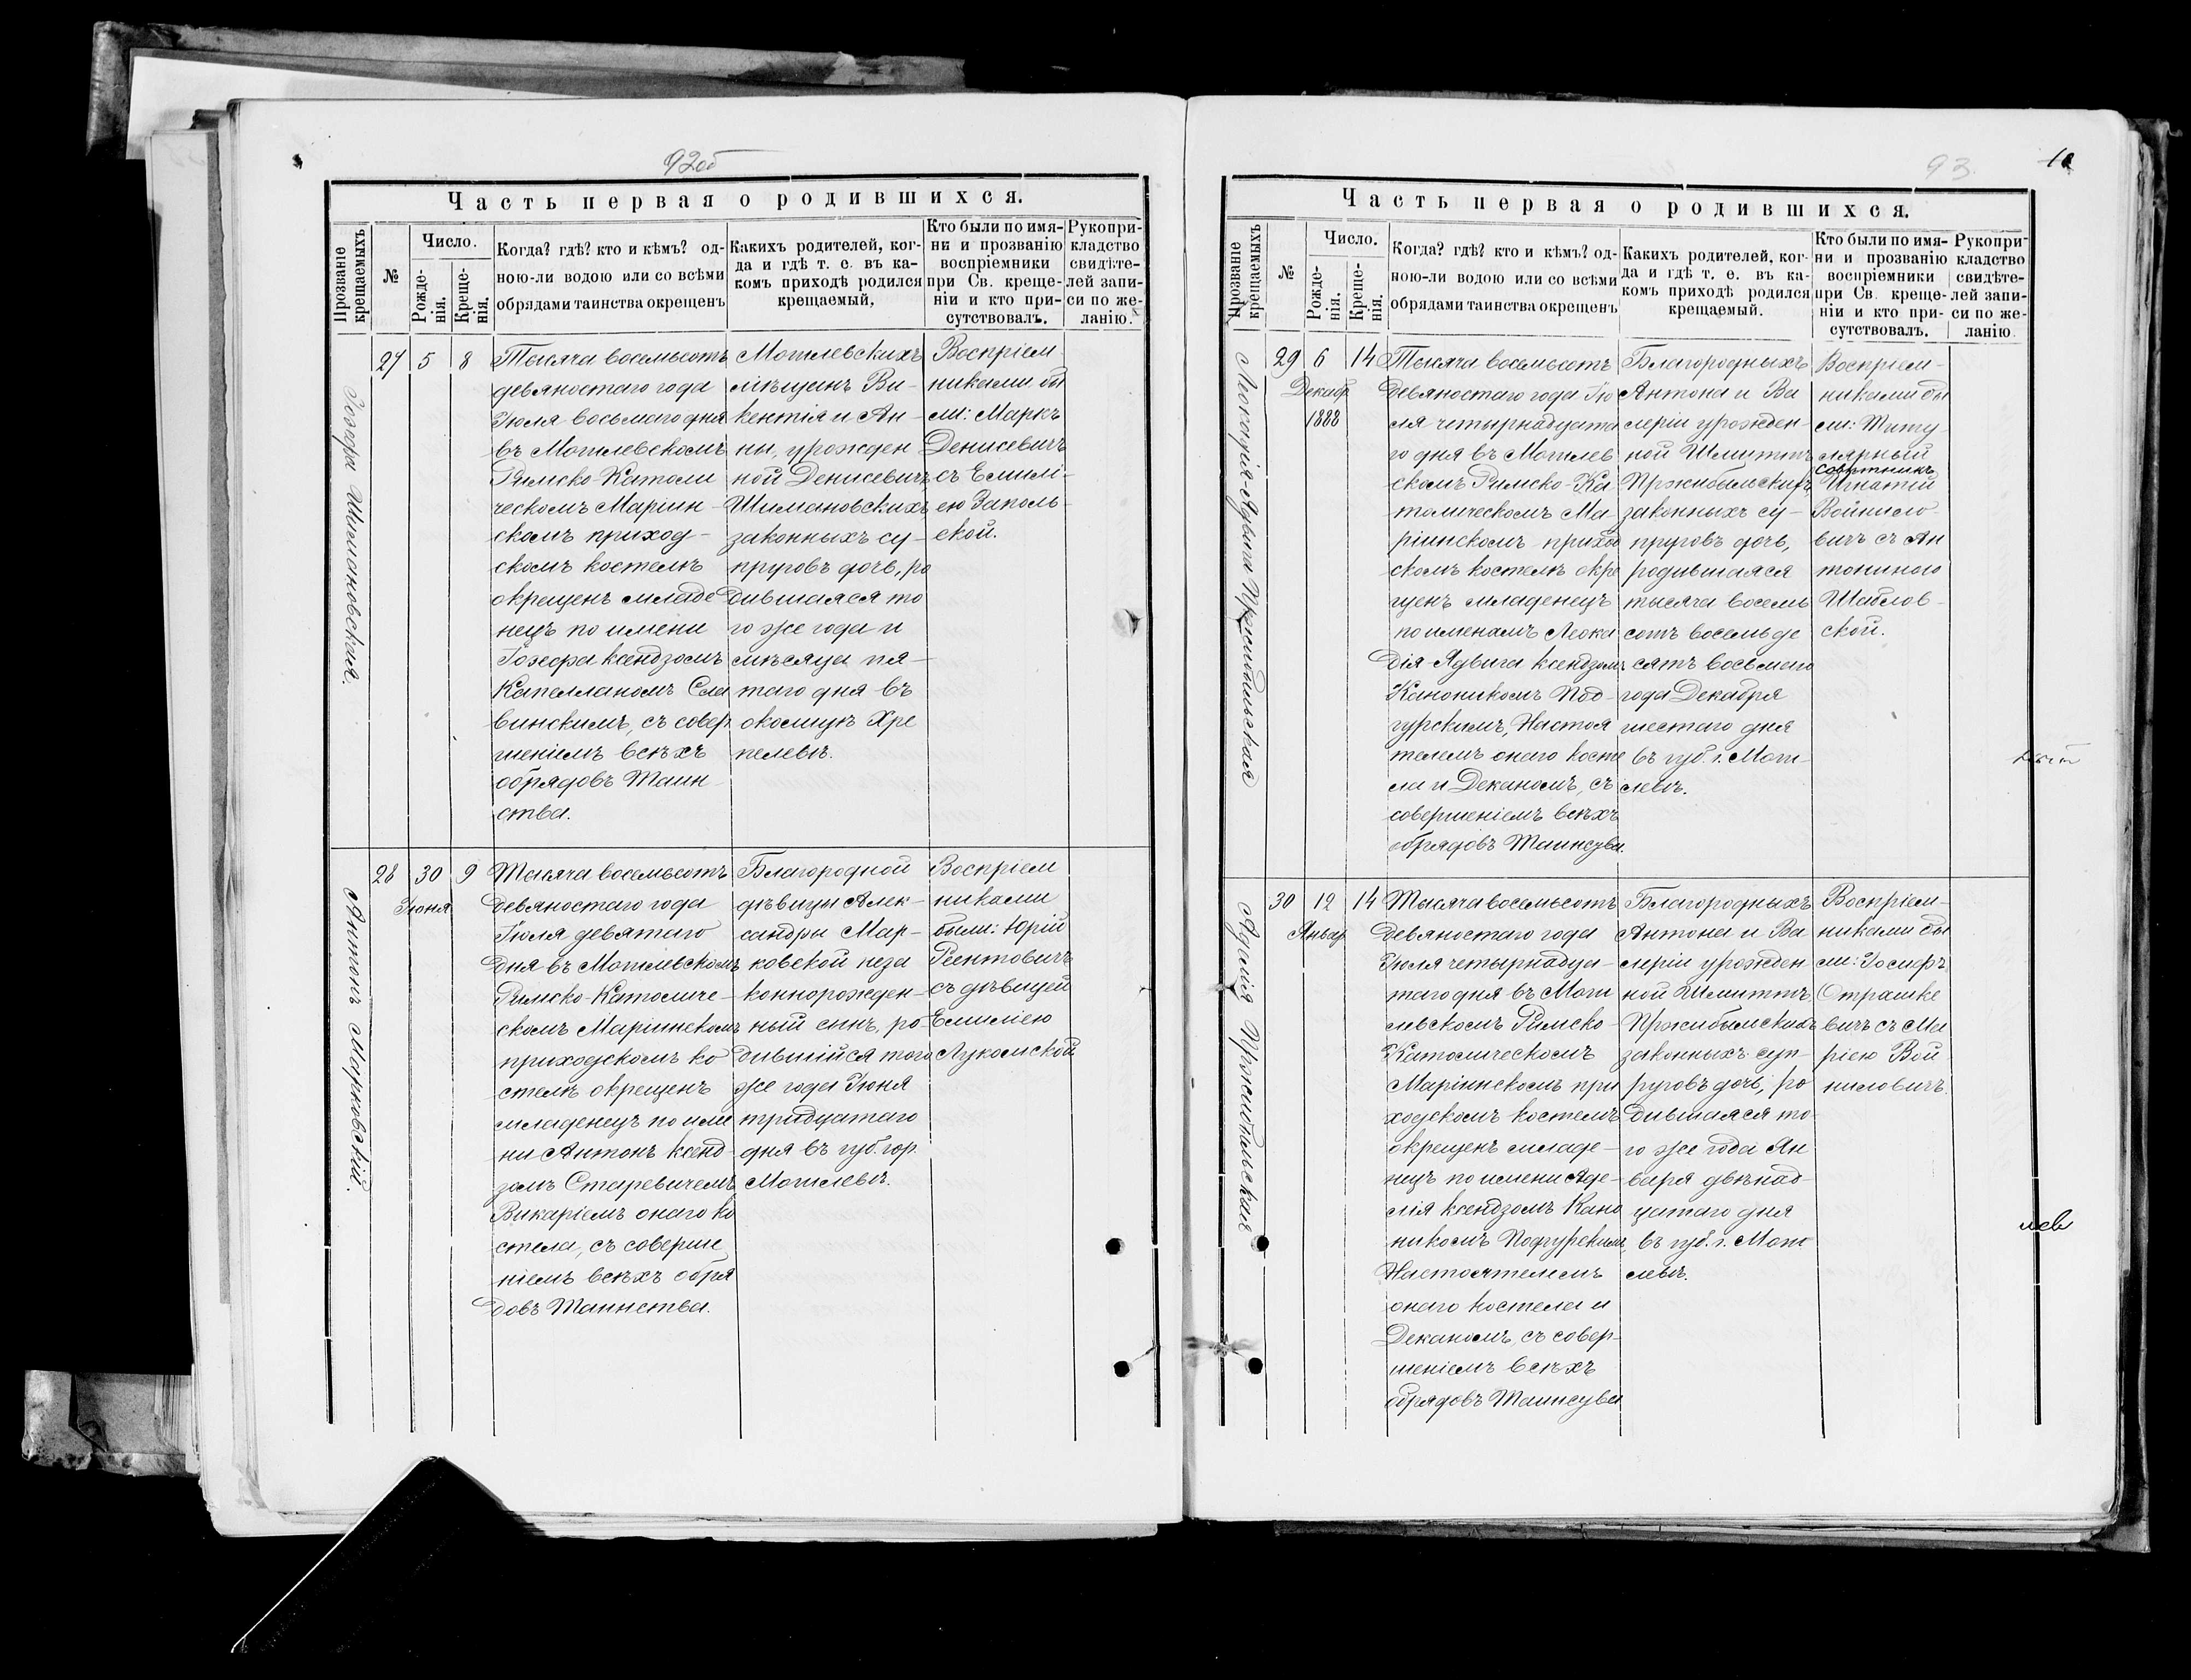 92об
Часть первая о родившихся.
Прозваніе крещаемыхъ
№
Число.
Рожде-
нія.
Креще-
нія.
Когда? гдѣ? кто и кѣмъ? од-
ною-ли водою или со всѣми
обрядами таинства окрещенъ
Какихъ родителей, ког-
да и гдѣ т. е. въ ка-
комъ приходѣ родился
крещаемый.
Кто были по имя-
ни и прозванію
воспріемники
при Св. креще-
ніи и кто при-
сутствовалъ.
Рукопри-
кладство
свидѣте-
лей запи-
си по же-
ланію.
Іозефа Шимановская.
27 5 8
Тысяча восемьсотъ
девяностаго года
Іюля восьмаго дня
въ Могилевскомъ
Римско-Католи
ческомъ Маріин-
скомъ приход-
скомъ костелѣ
окрещенъ младе
нецъ по имени
Іозефа ксендзомъ
Капелланомъ Сла
винскимъ, съ совер
шеніемъ всѣхъ
обрядовъ Таин
ства.
Могилевскихъ
мѣщанъ Ви-
кентія и Ан-
ны, урожден
ной Денисевичъ
Шимановскихъ
законныхъ су-
пруговъ дочь, ро
дившаяся то
го же года и
мѣсяца пя-
таго дня въ
околицѣ Хре
пелевѣ.
Воспріем
никами бы
ли: Маркъ
Денисевичъ
съ Емилі-
ею Заполь-
ской.
Антонъ Марковскій.
28 30 9
Іюня
Тысяча восемьсотъ
девяностаго года
Іюля девятаго
дня въ Могилевскомъ
Римско-Католиче-
скомъ Маріинскомъ
приходскомъ ко
стелѣ окрещенъ
младенецъ по име
ни Антонъ ксенд
зомъ Старевичемъ
Викаріемъ онаго ко
стела, съ соверше
ніемъ всѣхъ обря
довъ Таинства.
Благородной
дѣвицы Алек-
сандры Мар-
ковской неза
коннорожден-
ный сынъ, ро-
дившійся того
же года Іюня
тридцатаго
дня въ губ. гор.
Могилевѣ.
Воспріем
никами
были: Юрій
Реентовичъ
съ дѣвицей
Емиліею
Лукомской
93
10
Часть первая о родившихся.
Прозваніе крещаемыхъ
№
Число.
Рожде-
нія.
Креще-
нія.
Когда? гдѣ? кто и кѣмъ? од-
ною-ли водою или со всѣми
обрядами таинства окрещенъ
Какихъ родителей, ког-
да и гдѣ т. е. въ ка-
комъ приходѣ родился
крещаемый.
Кто были по имя-
ни и прозванію
воспріемники
при Св. креще-
ніи и кто при-
сутствовалъ.
Рукопри-
кладство
свидѣте-
лей запи-
си по же-
ланію.
Леокадія-Ядвига Пржибыльская
29 6 14
Декабр
1888
Тысяча восемьсотъ
девяностаго года Ію
ля четырнадцата
го дня въ Могилев
скомъ Римско-Ка
толическомъ Ма-
ріинскомъ приход
скомъ костелѣ окре
щенъ младенецъ
по именамъ Леока
дія-Ядвига ксендзомъ
Каноникомъ Под-
гурскимъ, Настоя
телемъ онаго косте
ла и Деканомъ, съ
совершеніемъ всѣхъ
обрядовъ Таинсува
Благородныхъ
Антона и Ва
леріи урожден-
ной Шмиттъ
Пржибыльскихъ
законныхъ су-
пруговъ дочь,
родившаяся
тысяча восемь
сотъ восемьде
сятъ восьмаго
года Декабря
шестаго дня
въ губ. г. Моги-
левѣ.
Воспріем-
никами бы
ли: Титу
лярный
Совѣтникъ
Игнатій
Войнило-
вичъ съ Ан
тониною
Шаблов-
ской.
Аделія Пржибыльская
30 12 14
Январ
Тысяча восемьсотъ
девяностаго года
Іюля четырнадца-
таго дня въ Моги
левскомъ Римско-
Католическомъ
Маріинскомъ при
ходскомъ костелѣ
окрещенъ младе-
нцъ по имени Аде-
лія ксендзомъ Кано
никомъ Подгурскимъ,
Настоятелемъ
онаго костела и
Деканомъ, съ совер-
шеніемъ всѣхъ
обрядовъ Таинсува
Благородныхъ
Антона и Ва
леріи урожден
ной Шмиттъ
Пржибыльскихъ
законныхъ суп-
руговъ дочь, ро
дившаяся то-
го же года Ян
варя двѣнад-
цатаго дня
въ губ. г. Моги
левѣ.
Воспріем-
никами бы
ли: Іосифъ
Страшке
вичъ съ Ма
ріею Вой
ниловичъ.